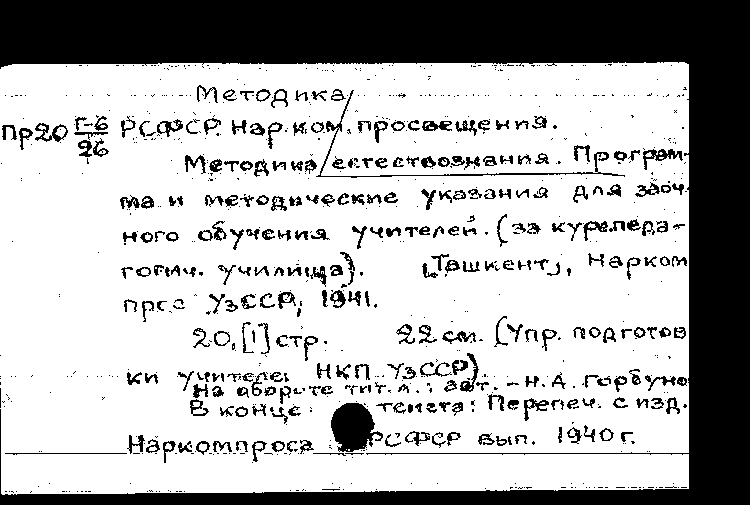 Методика
Пр20 Г-6/26 РСФСР. Нар. ком. просвещения.
Методика естествознания. Програм-
ма и методические указания для заоч-
ного обучения учителей. (за курс педа-
гогич. училища). [Ташкент], Нарком
прос УзССР, 1941.
20, [1] стр. 22 см. (Упр. подготов
ки учителей НКП УзССР).
На обороте тит. л.: авт. - Н. А. Горбуно
В конце текста: Перепеч. с изд.
Наркомпроса РСФСР вып. 1940 г.